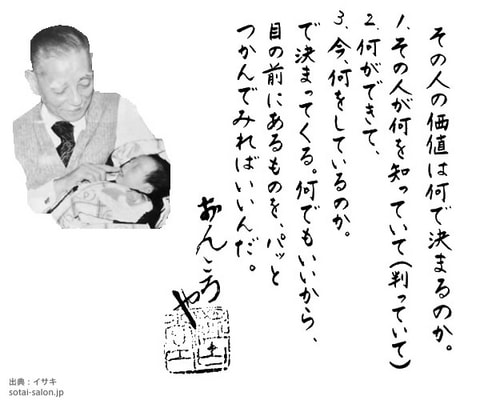 その人の価値は何で決まるのか。
1.その人が何を知っていて(判っていて)
2.何ができて、
3.今、何をしているのか。
で決まってくる。何でもいいから、
目の前にあるものを、パッと
つかんでみればいいんだ。
おんころや
出典:イサキ
sotai-salon.jp